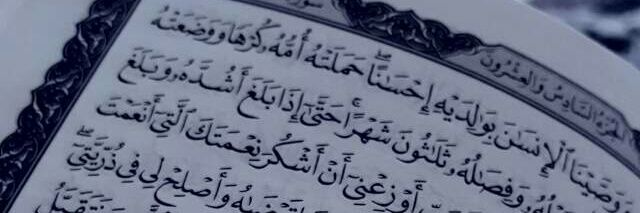 سورة
الجزء السادس والعشرون
ووصينا الإنسن بولديه إحسنا حملته أمه كرها ووضعته
وفصله ثلثون شهرا حتى إذا بلغ أشده وبلغ
أوزعني أن أشكر نعمتك التي أنعمت
وأصلح لي في ذريتي
نتقبل